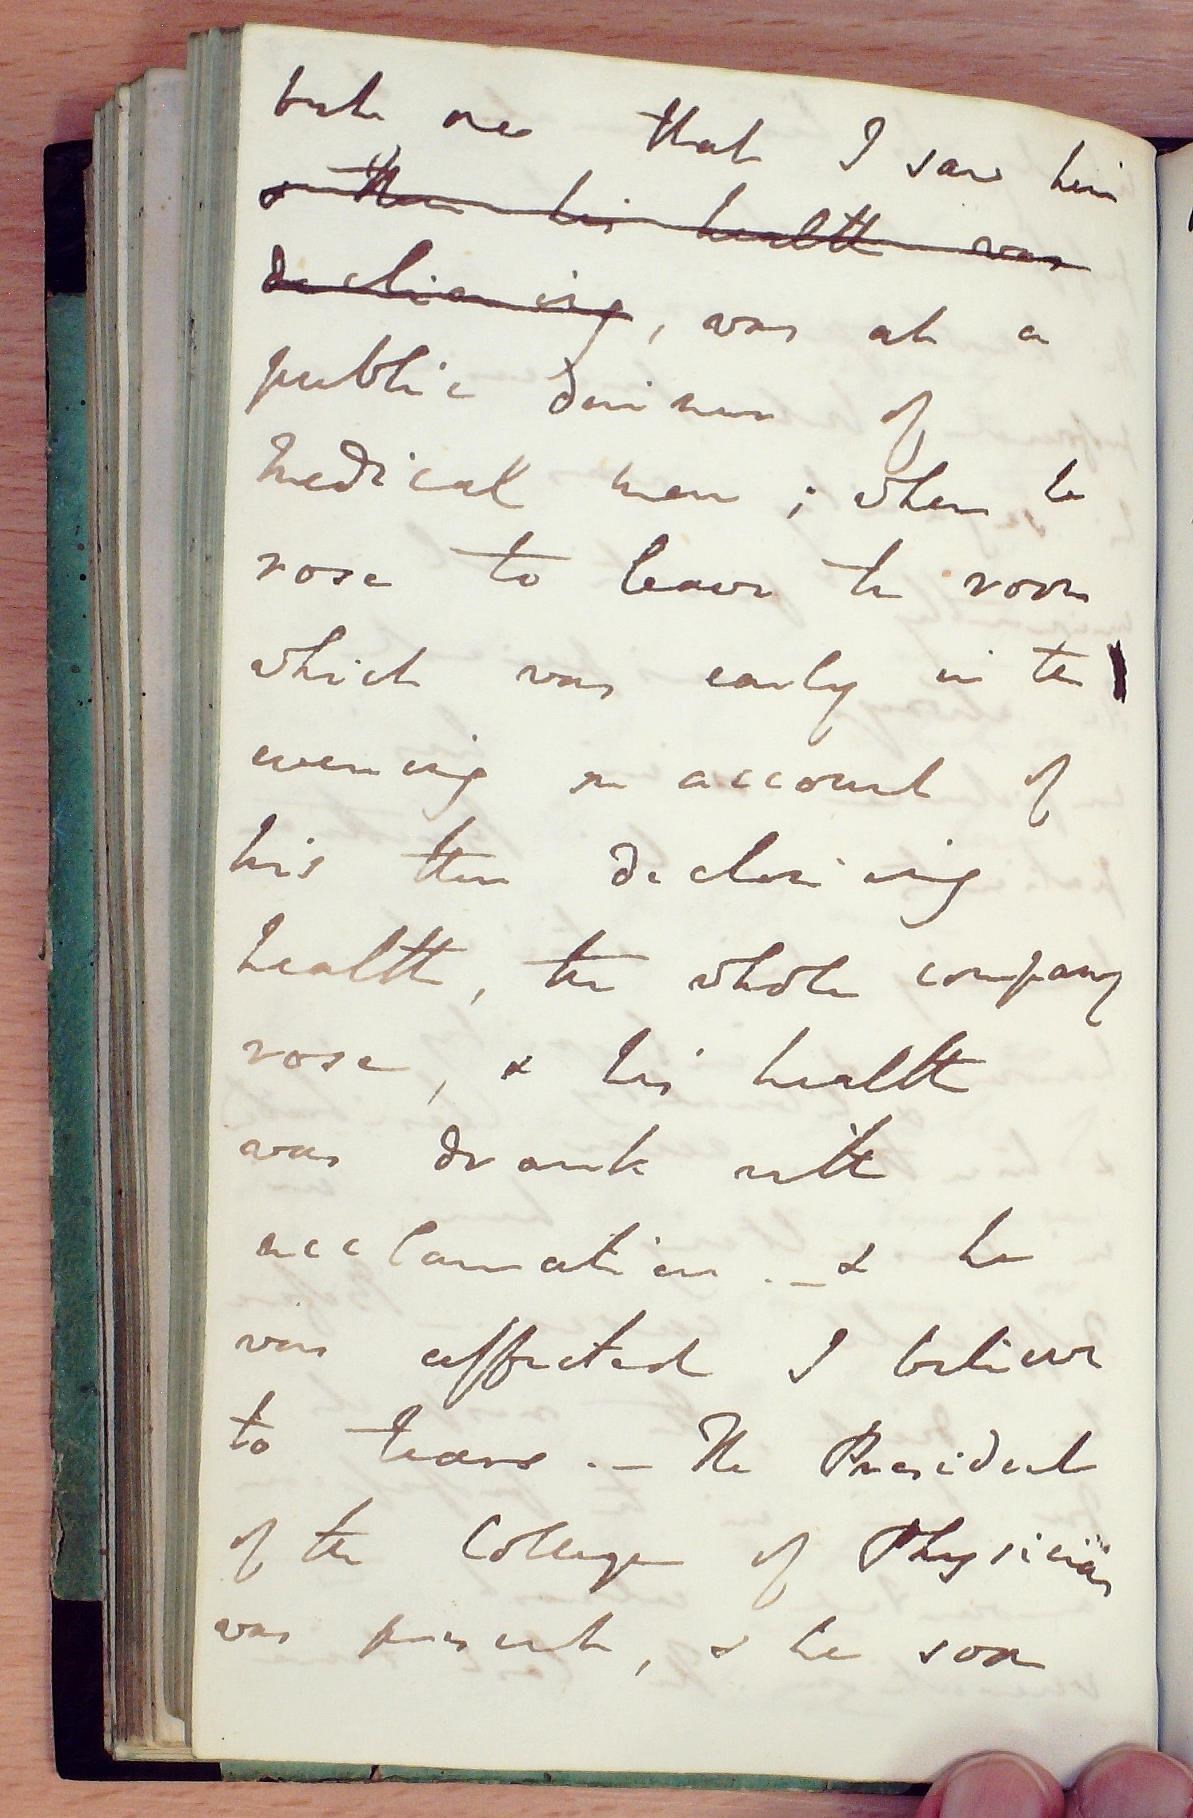 but one that I saw him
& then his health was
declining, was at a
public dinner of
medical men; when he
rose to leave the room
which was early in the
evening on account of
his then declining
health, the whole company
rose, & his health
was drank with
acclamation. _ & he
was affected I believe
to tears. _ The President
of the College of Physicians
was present, & he soon